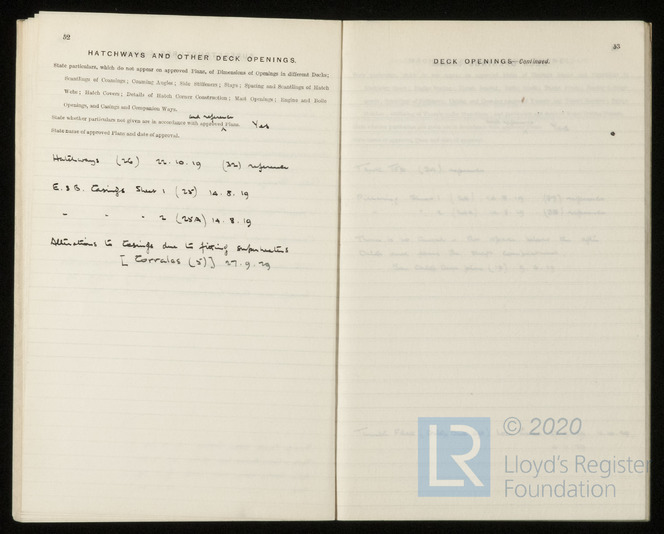 52
HATCHWAYS AND OTHER DECK OPENINGS.
State particulars, which do not appear on approved Plans, of Dimensions of Openings in different Decks;
Scantlings of Coamings; Coaming Angles; Side Stiffeners; Stays; Spacing and Scantlings of Hatch
Webs; Hatch Covers; Details of Hatch Corner Construction; Mast Openings; Engine and Boiler
Openings, and Casings and Companion Ways.
and reference
State whether particulars not given are in accordance with approved Plans. Yes
State names of approved Plans and date of approval.
Hatchways (26) 22.10.19 (32) reference
E. & B. Casings Sheet 1 (25) 14.8.19
" " " 2 (25A) 14.8.19
Alterations to casings due to fitting superheaters
[Torralas (5)] 27.9.29
53
DECK OPENINGS—Continued.
LR
© 2020
Lloyd's Register
Foundation